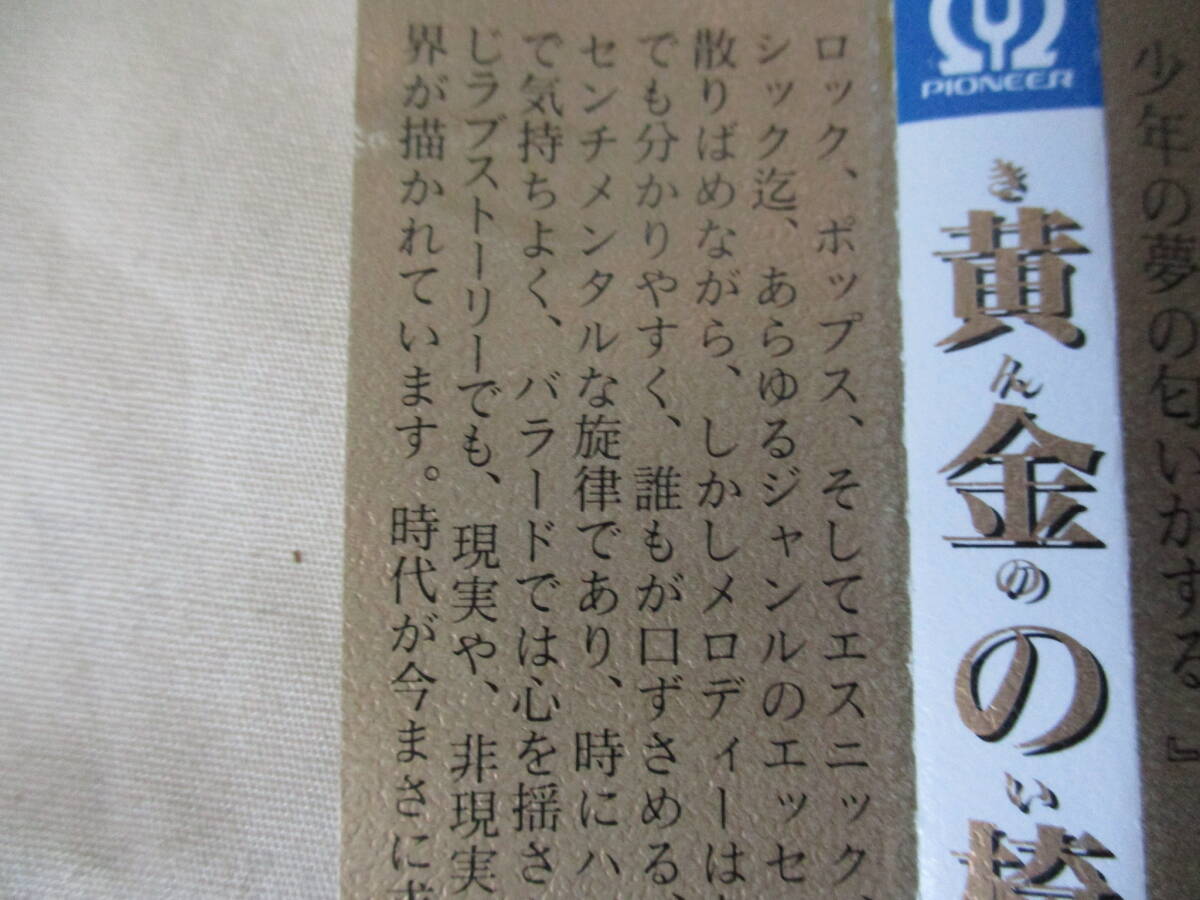 少年の夢の匂いがする』
PIONEER
きんのい
黄金の
ロック、ポップス、そしてエスニック、
シック迄、あらゆるジャンルのエッセ
散りばめながら、しかしメロディーは
でも分かりやすく、誰もが口ずさめる、
センチメンタルな旋律であり、時にハ
で気持ちよく、バラードでは心を揺さ
じラブストーリーでも、現実や、非現実
界が描かれています。時代が今まさに